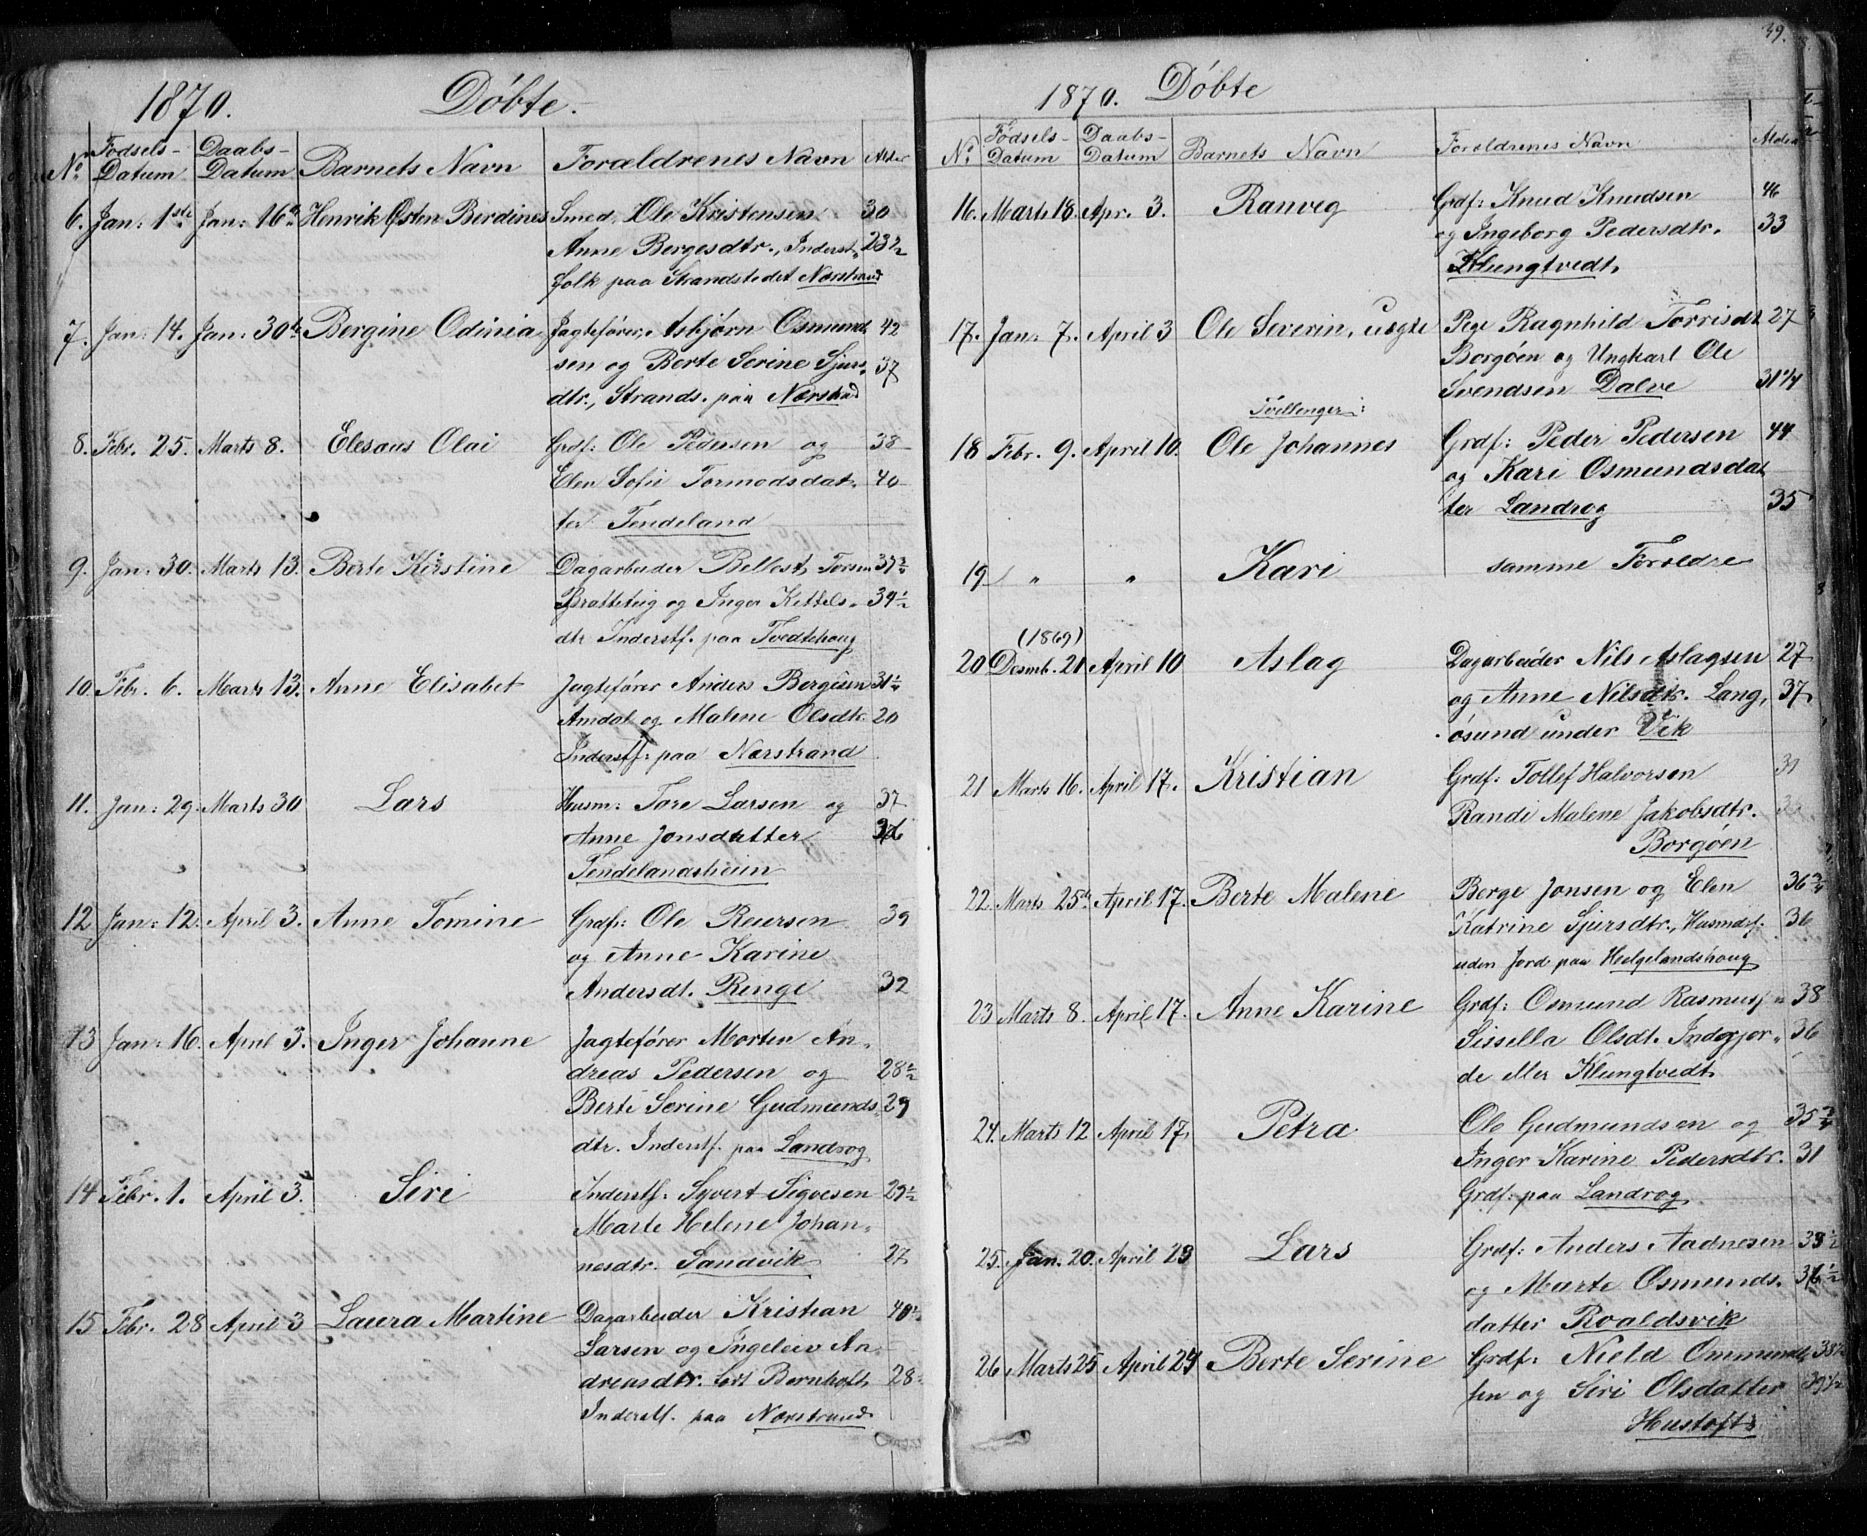 1870. Döbte.
No. Födsels-Datum Daabs-Datum Barnets Navn Foræildrenes Navn Alder
6. Jan: 1ste Jan: 16de Henrik Østen Berdines Smed, Ole Kristensen 30
Anne Bergesdtr., Inderst- 23 2/2
folk paa Strandstedet Nærstrand
7. Jan: 14. Jan: 30te Bergine Odinia Jagtefører, Asbjørn Osmund 42
sen og Berte Serine Sjurs- 37
dtr., Strands. paa Nærstrand
8. Febr. 25. Marts 8. Elesæus Olai Grdf: Ole Pedersen og 38
Elen Sofie Tormodsdat- 40
ter Tendeland
9. Jan: 30. Marts 13. Berte Kirstine Dagarbeider Bellest Torsen 37 3/4
Bratteteig og Inger Kittels- 34 1/2
dtr Inderstf. paa Tvedtehoug
10. Febr. 6. Marts 13. Anne Elisabet Jagtefører Anders Bergesen 31 1/4
Amdal og Malene Olsdtr. 20
Inderstf: paa Nærstrand
11. Jan: 29. Marts 30 Lars Husm: Tore Larsen og 37
Anne Jonsdatter 36
Tendelandsheien
12 Jan: 12. April 3. Anne Tomine Grdf: Ole Reiersen 39
og Anne Karine
Andersdt. Renge 32
13 Jan: 16. April 3. Inger Johanne Jagtefører Morten An-
dreas Pedersen og 28 1/2
Berte Serine Gudmunds- 29
dtr. Inderstf. paa Landrog
14 Febr. 1. April 3. Siri Inderstf: Syvert Sigvesen 29 1/2
Marte Helene Johan-
nesdtr. Sandvik 27
15 Febr. 28 April 3 Laura Martine Dagarbeider Kristian 40 1/2
Larsen og Ingeleiv An-
dreasdtr. født Bernhoft 28
Inderstf. paa Nærstrand
39.
1870. Döbte
No. Födsels-Datum Daabs-Datum Barnets Navn Forældrenes Navn Alder
16. Marts 18. Apr. 3. Ranveg Grdf: Knud Knudsen 46
og Ingeborg Pedersdtr. 33
Klungtvedt,
17. Jan: 7. April 3 Ole Severin, uægte Pige Ragnhild Torrisdt 27
Borgøen og Ungkarl Ole
Svendsen Dalve 31 1/4
Tvillenger:
18 Febr. 9. April 10. Ole Johannes Grdf: Peder Pedersen 44
og Kari Osmundsdat
ter Landrog 35
19 " " Kari samme Foreldre
(1869)
20 Desmb. 21 April 10 Aslag Dagarbeider Nils Aslagsen 27
og Anne Nilsdtr. Lang, 37
øsund under Vik
21 Marts 16. April 17. Kristian Grdf: Tollef Halvorsen
Randi Malene Jakobsdtr.
Borgøen
22. Marts 25de April 17. Berte Malene Berge Jonsen og Elen 36 3/4
Katrine Sjursdtr., Husmdf: 36
uden Jord paa Helgelandshoug
23 Marts 8. April 17. Anne Karine Grdf: Osmund Rasmusf 38
Sissella Olsdt. Indgjor- 36
de eller Klungtvedt
24. Marts 12 April 17 Petra Ole Gudmundsen og 35 3/4
Inger Karine Pedersdtr. 31
Grdf: paa Landrog
25. Jan. 20. April 23 Lars Grdf: Anders Aadnesen 33 1/2
og Marte Osmunds- 36 1/2
datter Roaldsvik
26 Marts 25 April 24 Berte Serine Grdf: Nield Ommund 38 1/2
sen og Siri Olsdatter 39 1/2
Hustoft